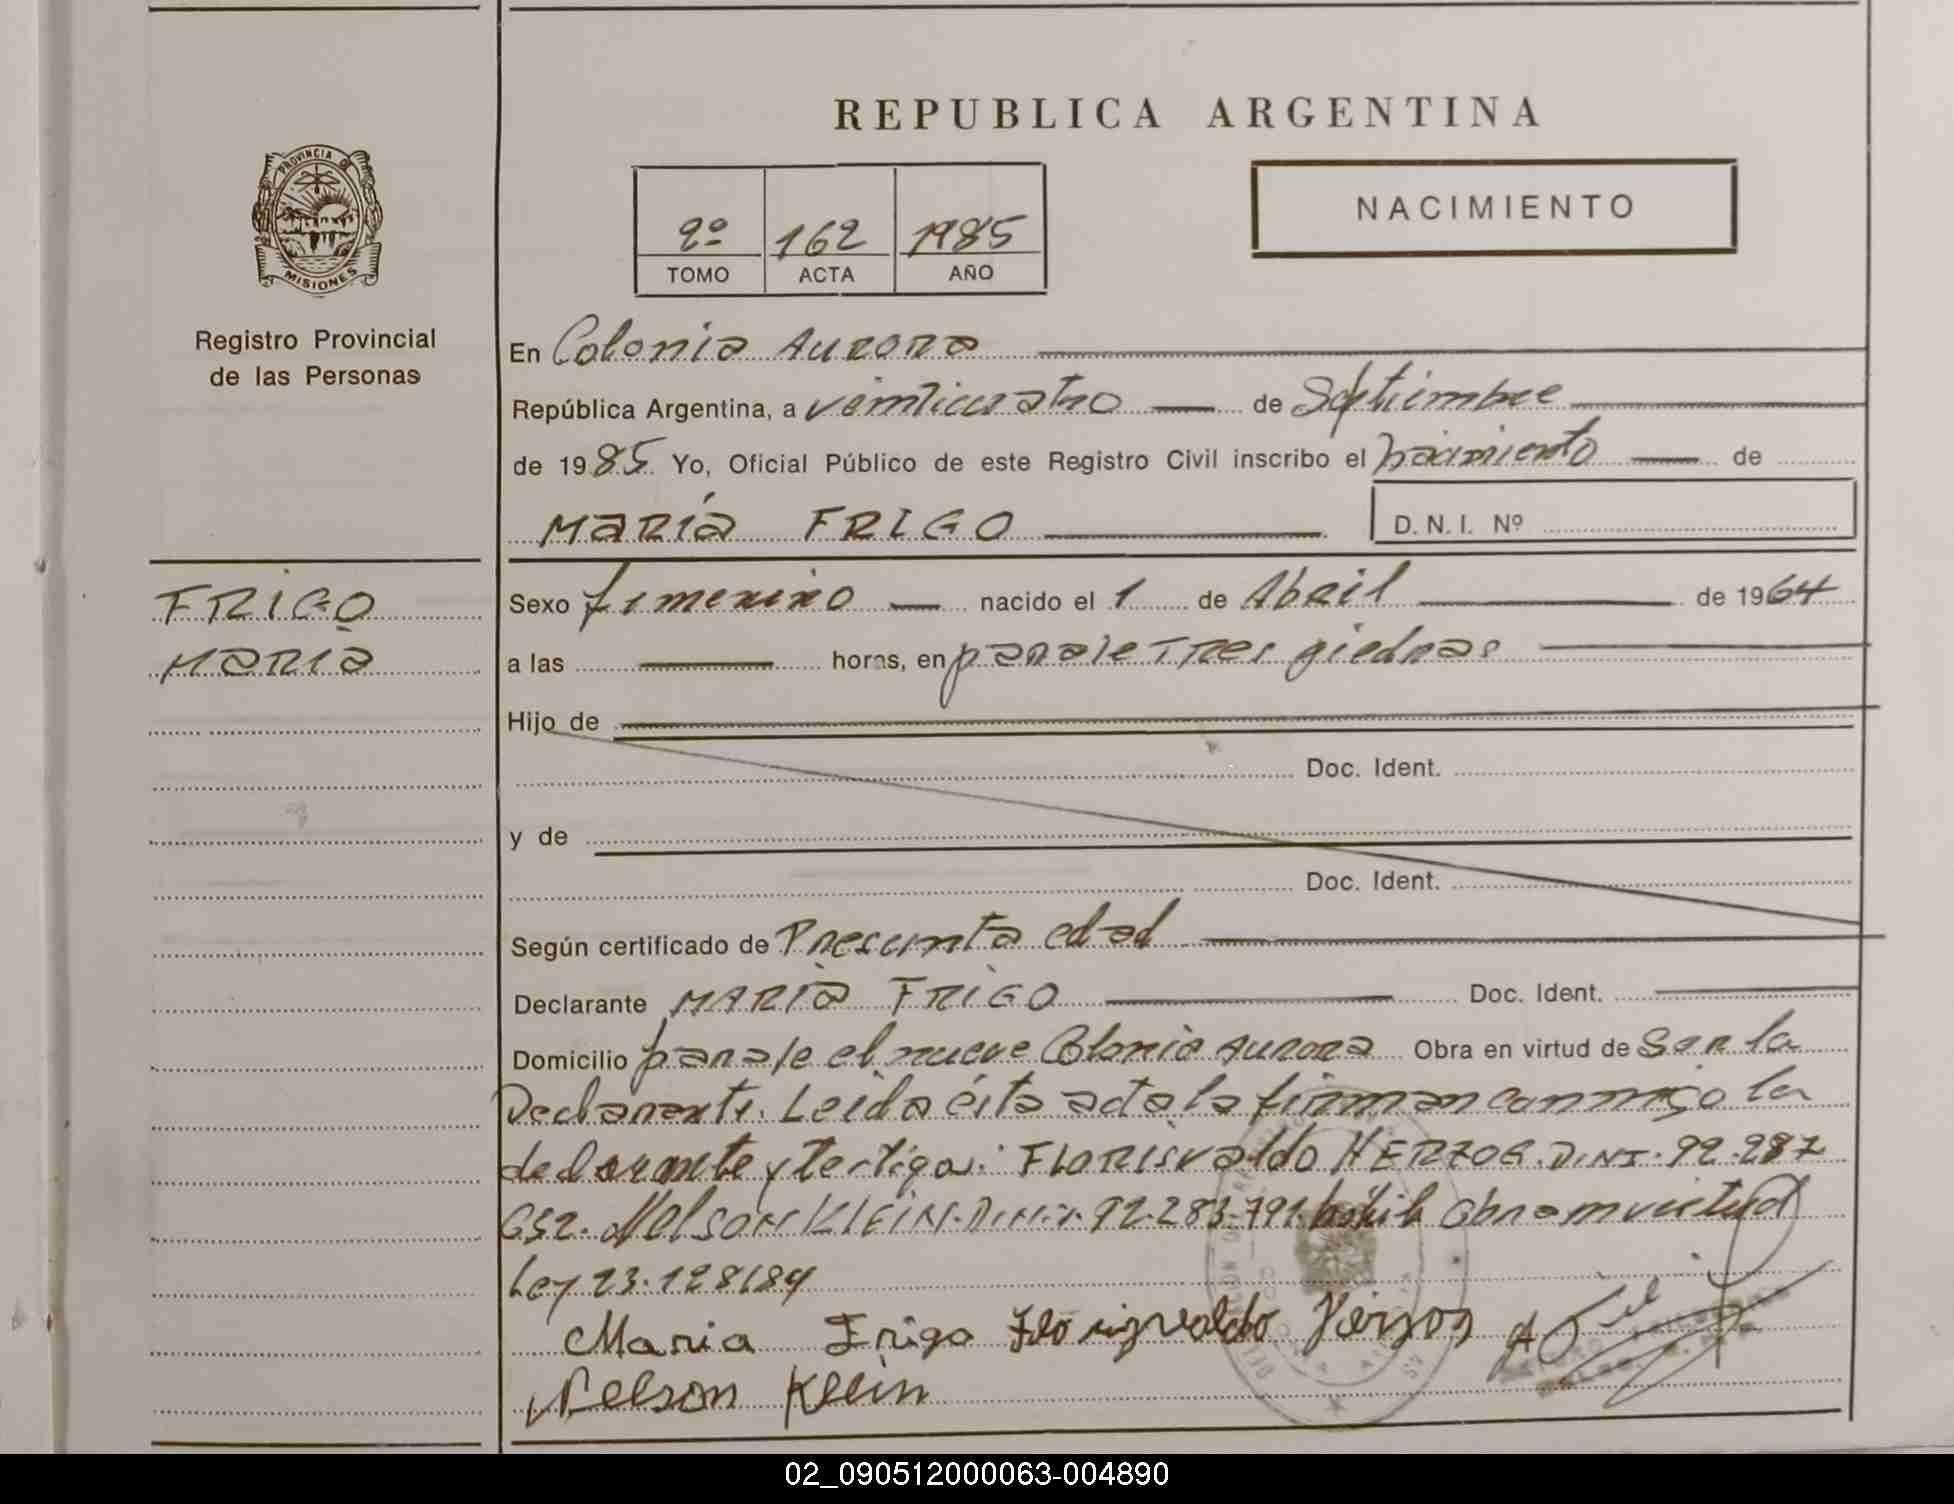 REPUBLICA ARGENTINA
PROVINCIA DE
MISIONES
Registro Provincial
de las Personas
2º 162 1985
TOMO ACTA AÑO
NACIMIENTO
En Colonia Aurora
República Argentina, a veinticuatro de Septiembre
de 1985 Yo, Oficial Público de este Registro Civil inscribo el nacimiento de
MARÍA FRIGO D.N.I. Nº
FRIGO
MARIA
Sexo femenino nacido el 1 de Abril de 1964
a las horas, en paraje Tres piedras
Hijo de
Doc. Ident.
y de
Doc. Ident.
Según certificado de Presunta edad
Declarante MARIA FRIGO Doc. Ident.
Domicilio paraje el nueve Colonia Aurora Obra en virtud de Ser la
Declarante. Leida ésta acta la firman conmigo la
declarante y testigos: FLORISVALDO HERZOG. D.N.I. 92.287
652. Nelson KLEIN. D.N.I. 92.283.791. Obra en virtud
Ley 23.128/84
Maria Frigo Florisvaldo Herzog
Nelson Klein
02_090512000063-004890